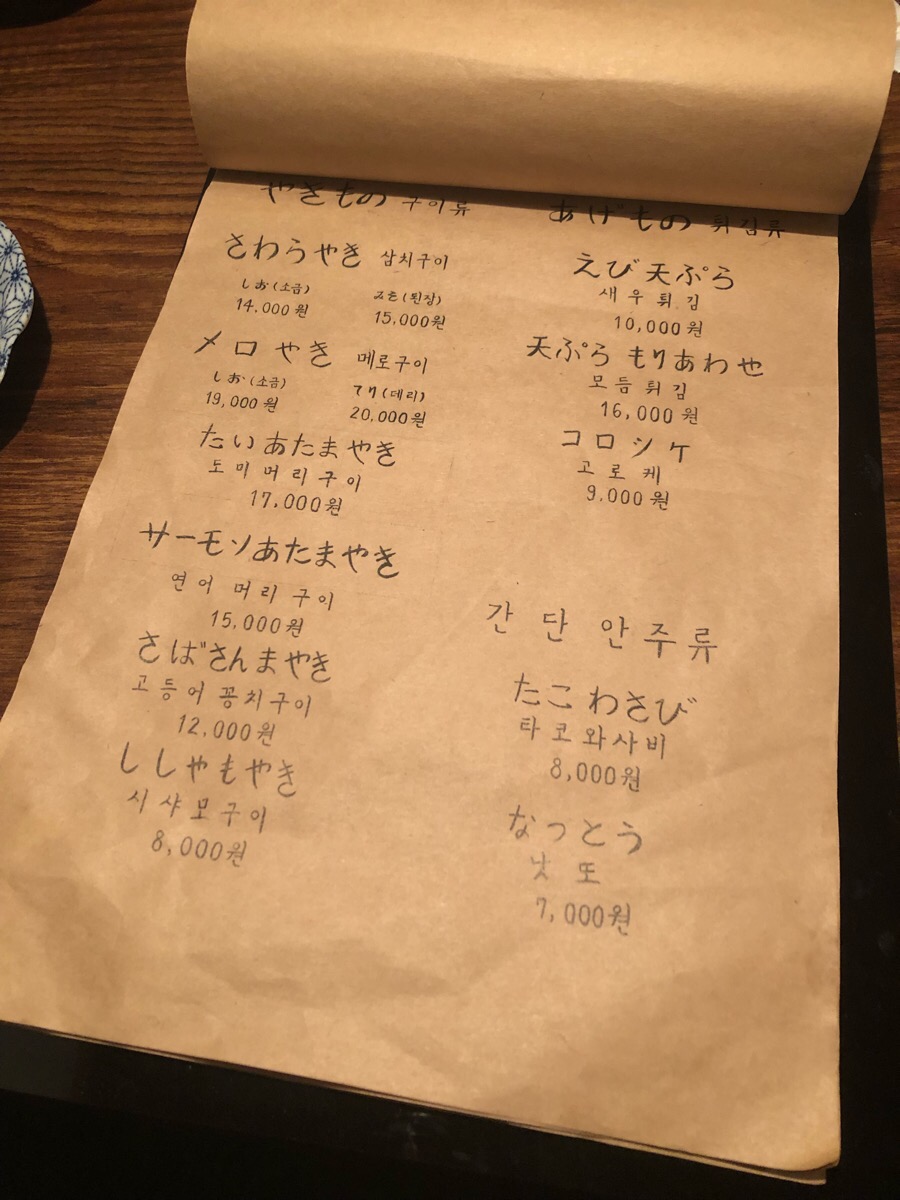 やきもの 구이류
さわらやき 삼치구이
しお(소금) みそ(된장)
14,000원 15,000원
メロやき 메로구이
しお(소금) てり(데리)
19,000원 20,000원
たいあたまやき
도미머리구이
17,000원
サーモンあたまやき
연어 머리구이
15,000원
さばさんまやき
고등어 꽁치구이
12,000원
ししゃもやき
시샤모구이
8,000원
あげもの 튀김류
えび天ぷら
새우튀김
10,000원
天ぷら もりあわせ
모듬튀김
16,000원
コロッケ
고로케
9,000원
간단 안주류
たこわさび
타코와사비
8,000원
なっとう
낫또
7,000원